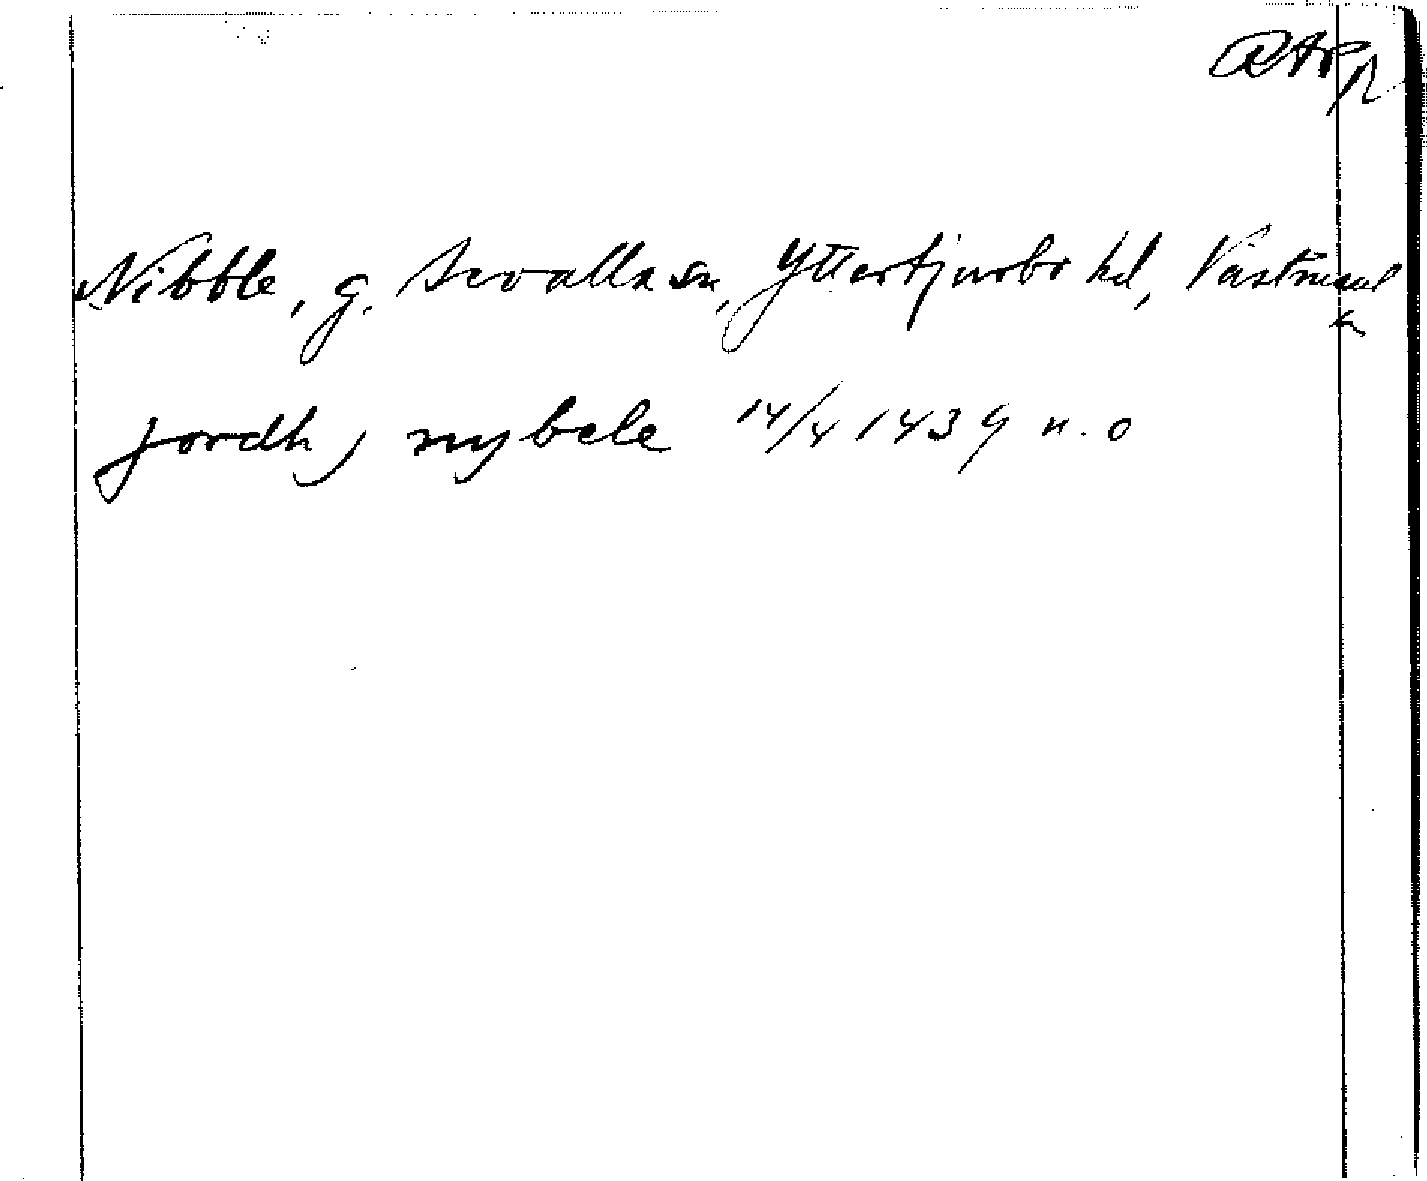 RAp
Nibble, g. Sevalla sn, Yttertjurbo hd, Västmanl
jordh j nybele 14/4 1439 n. o